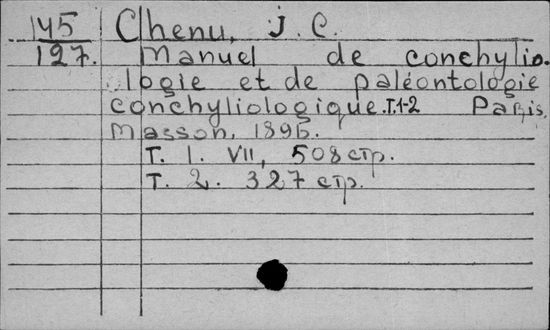 145 Chenu, J. C.
127. Manuel de conchylio-
logie et de paléontologie
conchyliologique. T.1-2 Paris,
Masson, 1895.
T. 1. VII, 508 стр.
T. 2. 327 стр.